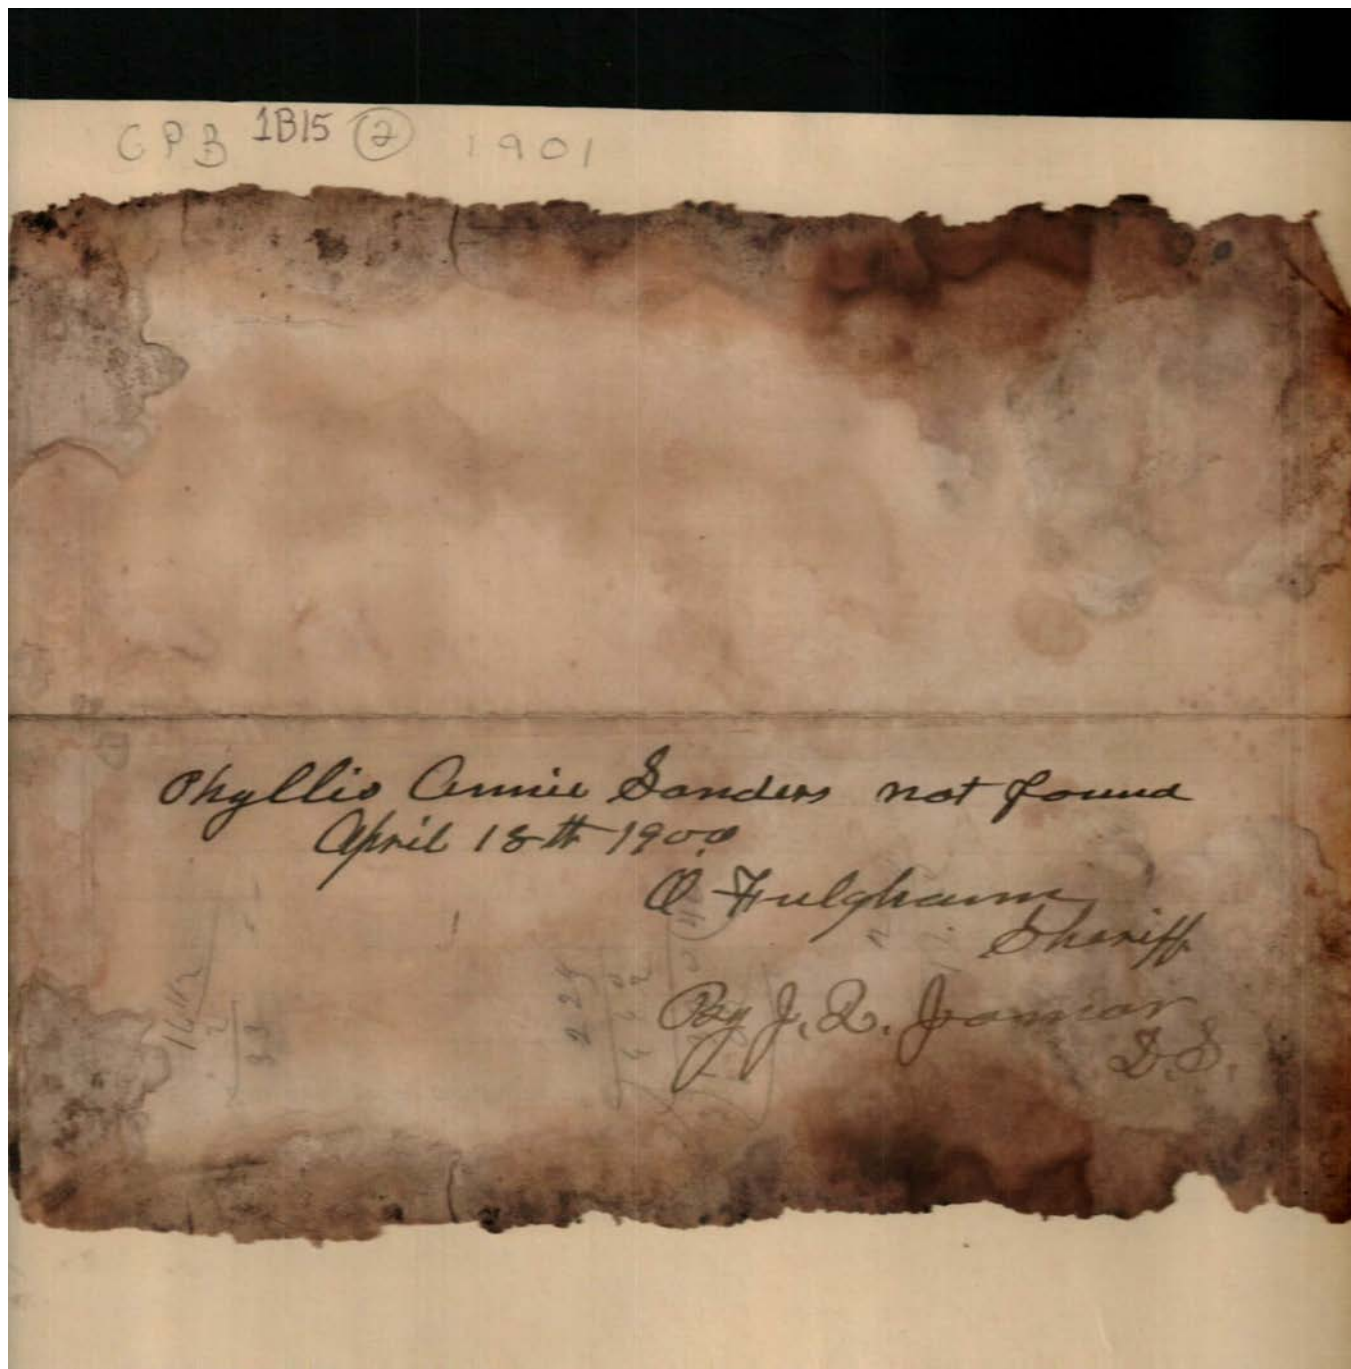 GPB 1B15 2 1901
Phyllis Annie Sanders not found
April 18th 1900
O. Fulgham
Sheriff
By J. Q.
D.S.
224